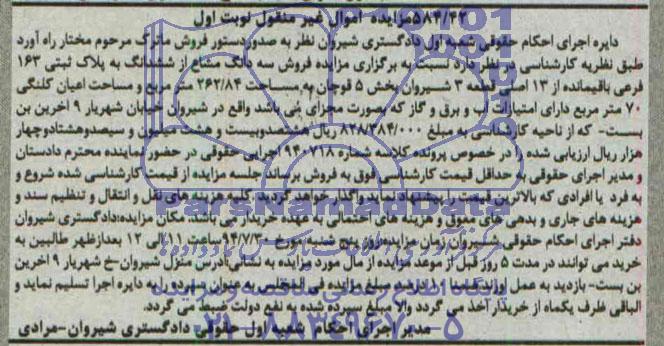 ۵۸۴/۴۲مزایده اموال غیر منقول نوبت اول
دایره اجرای احکام حقوقی شعبه اول دادگستری شیروان نظر به صدوردستور فروش ماترک مرحوم مختار راه آورد
طبق نظریه کارشناسی در نظر دارد نسبت به برگزاری مزایده فروش سه دانگ مشاع از ششدانگ به پلاک ثبتی ۱۶۳
فرعی باقیمانده از ۱۳ اصلی قطعه ۳ شیروان بخش ۵ قوچان به مساحت ۲۶۲/۸۴ متر مربع و مساحت اعیان کلنگی
۷۰ متر مربع دارای امتیازات آب و برق و گاز که بصورت مجزای می باشد واقع در شیروان خیابان شهریار ۹ اخرین بن
بست- که از ناحیه کارشناسی به مبلغ ۸۲۸/۳۸۴/۰۰۰ ریال هشتصدوبیست و هشت میلیون و سیصدوهشتادوچهار
هزار ریال ارزیابی شده را در خصوص پرونده کلاسه شماره ۹۴۰۷۱۸ اجرایی حقوقی در حضور نماینده محترم دادستان
و مدیر اجرای حقوقی به حداقل قیمت کارشناسی فوق به فروش برساند جلسه مزایده از قیمت کارشناسی شده شروع و
به فرد یا افرادی که بالاترین قیمت را پیشنهاد نمایدواگذار خواهد گردید. کلیه هزینه های نقل و انتقال و تنظیم سند و
هزینه های جاری و بدهی های معوق و هزینه های احتمالی به عهده خریدار می باشد مکان مزایده:دادگستری شیروان
دفتر اجرای احکام حقوقی شیروان زمان مزایده:روز پنج شنبه مورخ ۹۴/۷/۳۰ ساعت ۱۱ الی ۱۲ بعدازظهر طالبین به
خرید می توانند در مدت ۵ روز قبل از موعد مزایده از مال مورد مزایده به نشانی آدرس منزل شیروان-خ شهریار ۹ اخرین
بن بست- بازدید به عمل اورند ضمنا ۱۰ درصد مبلغ مزایده فی المجلس به عنوان سپرده به دایره اجرا تسلیم نماید و
الباقی ظرف یکماه از خریدار آخذ می گردد والا مبلغ سپرده شده به نفع دولت ضبط می گردد.
مدیر اجرای احکام شعبه اول حقوقی دادگستری شیروان-مرادی
ParsNamadData
۰۲۱-۸۸۳۴۹۶۷۰-۵